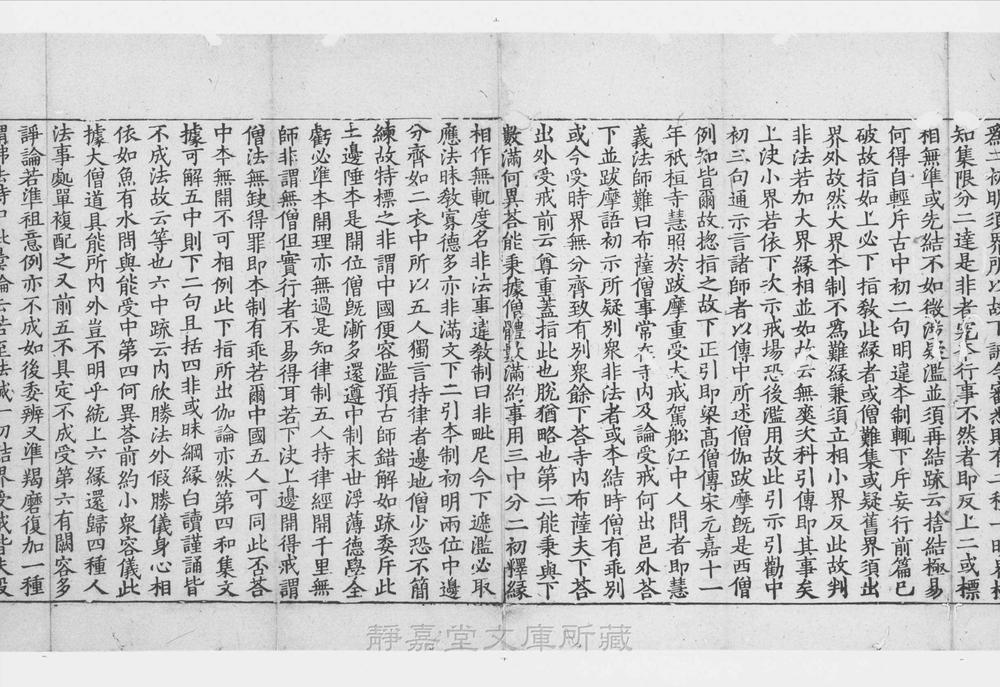 知集限分二達是非者究今行事不然者即反上二或標
相無準或先結不如微涉疑濫並須再結䟽云捨結極易
何得自輕斥古中初二句明違本制輒下斥妄行前篇已
破故指如上必下指教此緣者或僧難集或疑舊界須出
界外故然大界本制不為難緣兼須立相小界反此故判
非法若加大界緣相並如故云無爽次科引傳即其事矣
上決小界若依下次示戒場恐後濫用故此引示引勸中
初三句通示言諸師者以傳中所述僧伽跋摩旣是西僧
例知皆爾故揔指之故下正引即梁高僧傳宋元嘉十一
年祇桓寺慧照於跋摩重受大戒駕舩江中人問者即慧
義法師難曰布薩僧事常在寺内及論受戒何出邑外荅
下並跋摩語初示所疑別衆非法者或本結時僧有乖別
或今受時界無分齊致有別衆餘下荅寺内布薩夫下荅
出外受戒前云尊重蓋指此也脫猶略也第二能秉與下
數滿何異荅能秉據僧體數滿約事用三中分二初釋緣
相作無軌度名非法事違敎制曰非毗尼今下遮濫必取
應法昧敎寡德多亦非滿文下二引本制初明兩位中邊
分齊如二衣中所以五人獨言持律者邊地僧少恐不簡
練故特標之非謂中國便容濫預古師錯解如䟽委斥此
土邊陲本是開位僧旣漸多還遵中制末世浮薄德學全
虧必準本開理亦無過是知律制五人持律經開千里無
師非謂無僧但實行者不易得耳若下決上邊開得戒謂
僧法無缺得罪即本制有乖若爾中國五人可同此否荅
中本無開不可相例此下指所出伽論亦然第四和集文
據可解五中則下二句且括四非或昧綱緣白讀謹誦皆
不成法故云等也六中䟽云内欣勝法外假勝儀身心相
依如魚有水問與能受中第四何異荅前約小衆容儀此
據大僧道具能所内外豈不明乎統上六緣還歸四種人
法事處單複配之又前五不具定不成受第六有闕容多
諍論若準祖意例亦不成如後委辨又準羯磨復加一種
靜嘉堂文庫所藏